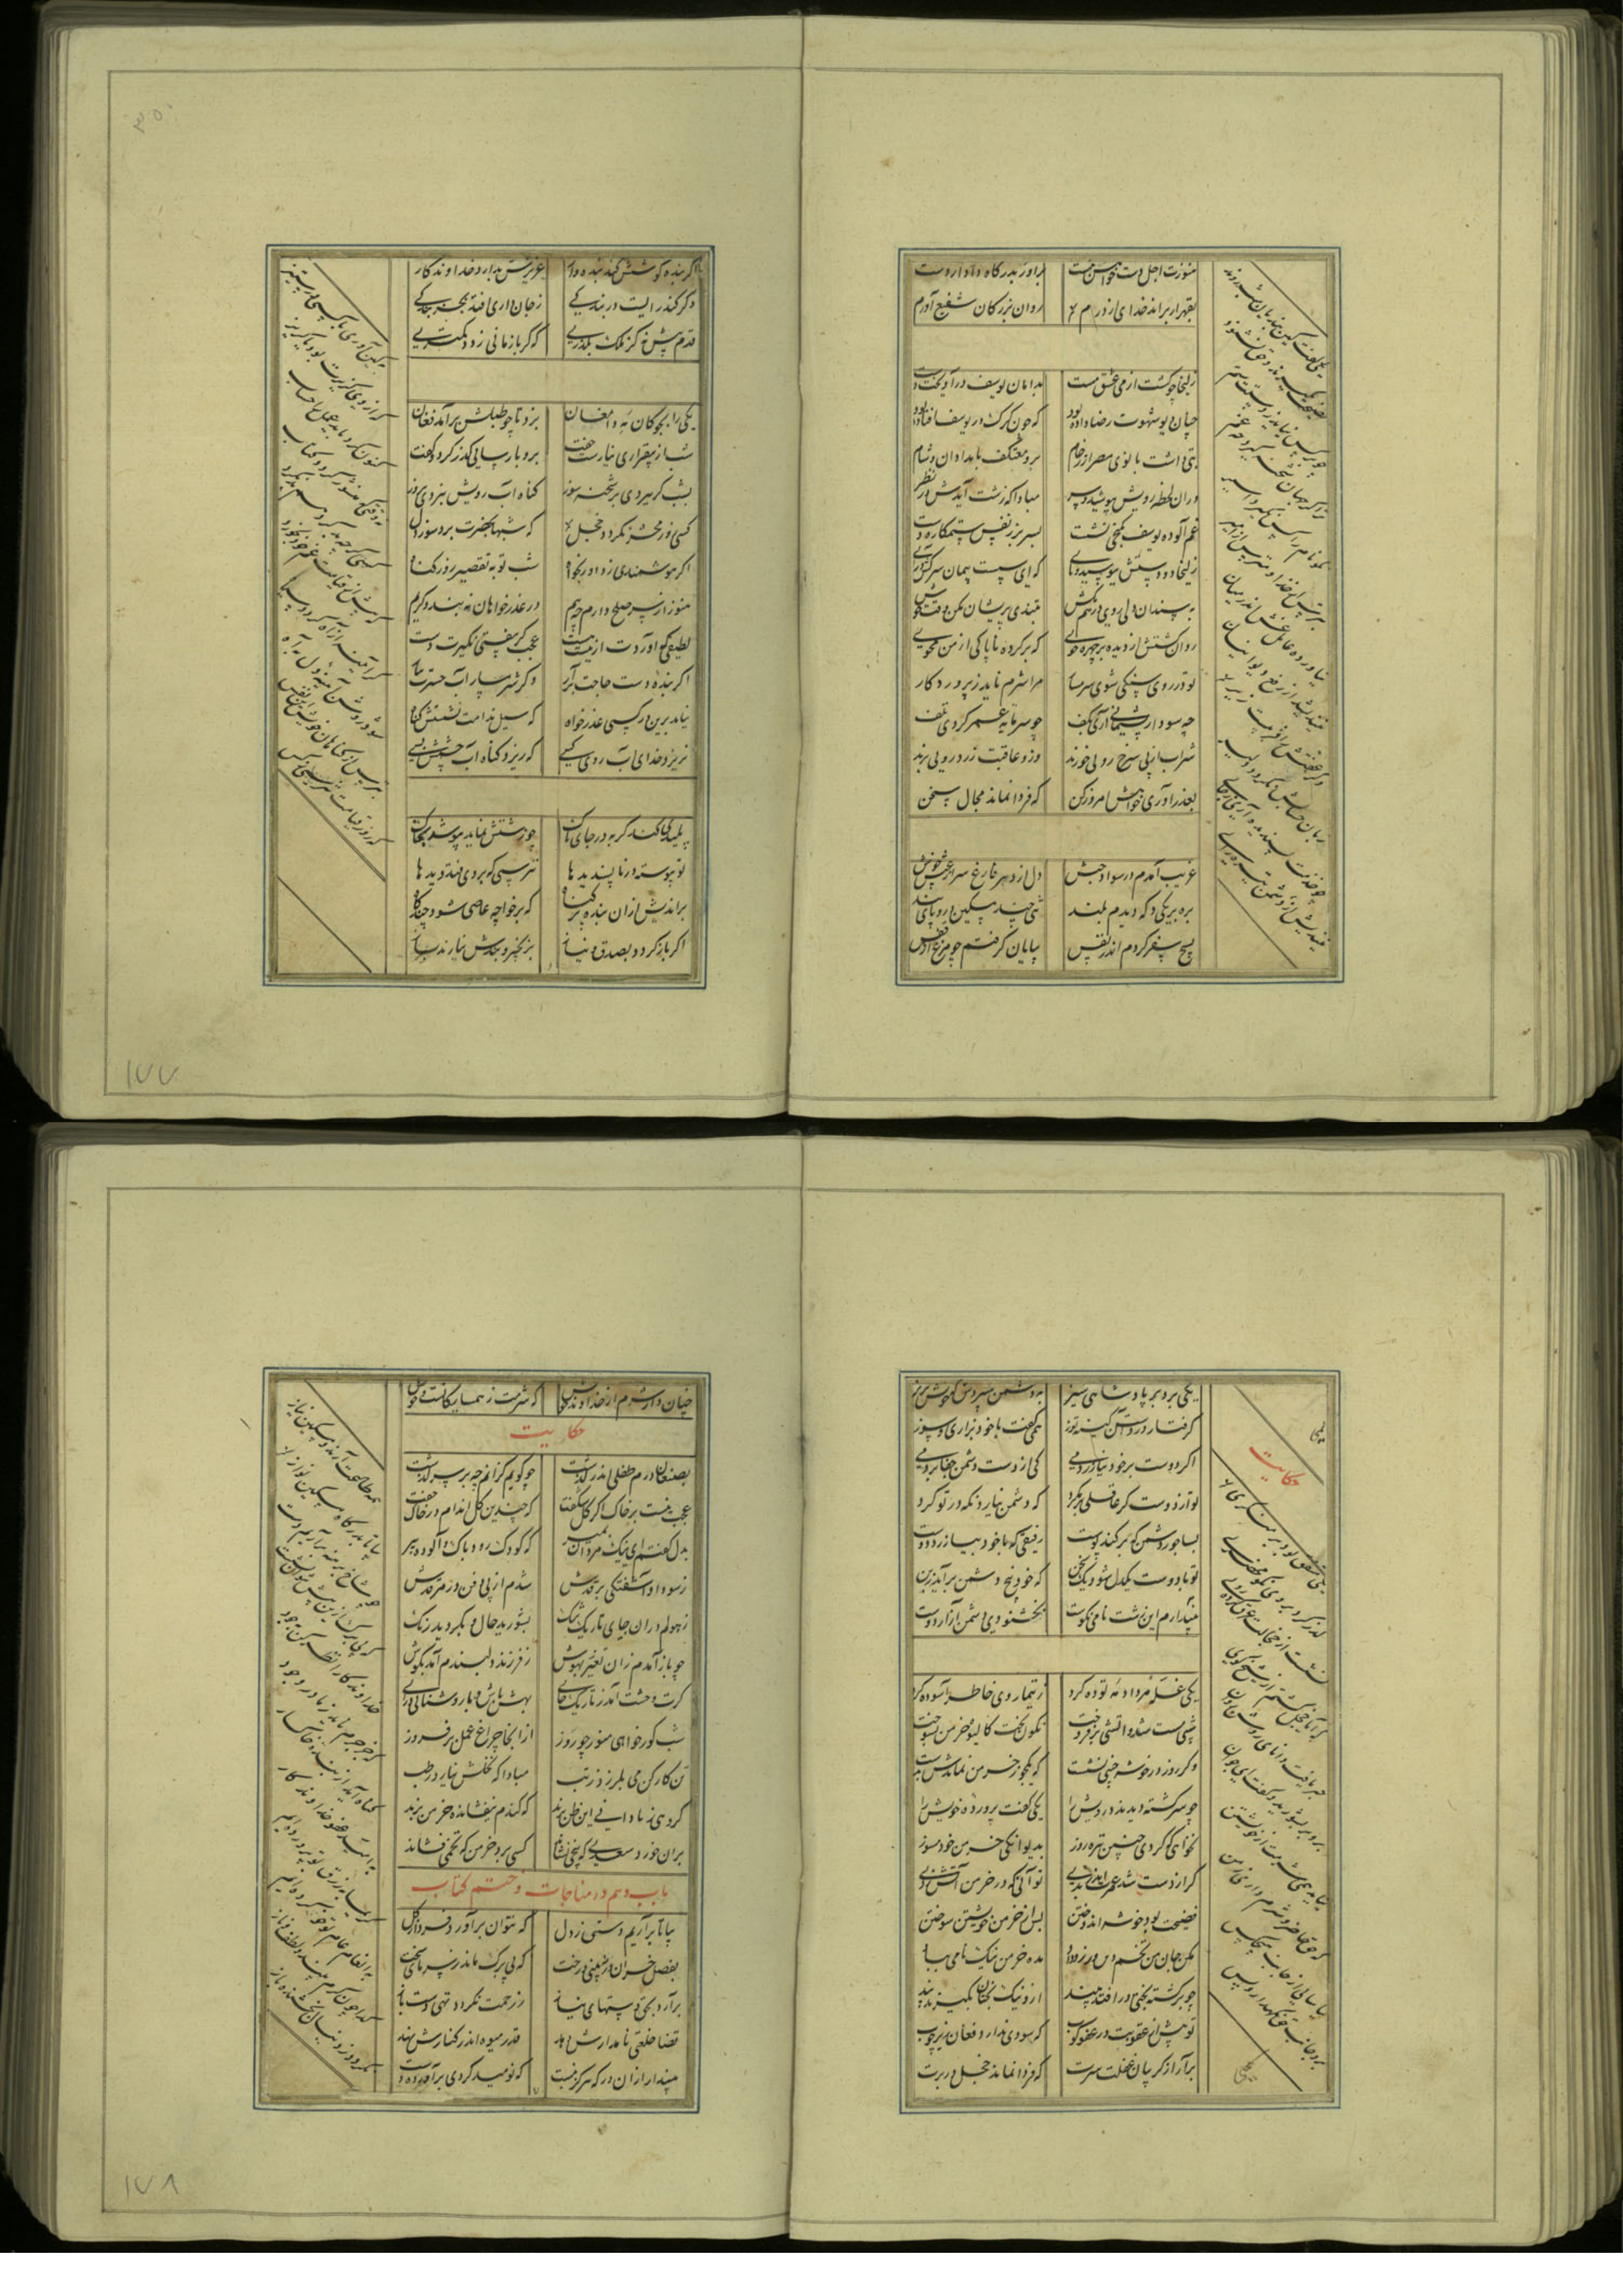 هنوزت اجل دست خواهش نبست
براور بدرگاه دادار دست
بقهر ار براند خدای از درم
روان بزرگان شفیع آورم
زلیخا چو گشت از می عشق مست
بدامان یوسف درآویخت دست
چنان دیو شهوت رضا داده بود
که چون گرگ در یوسف افتاده بود
بتی داشت بانوی مصر از رخام
برو معتکف بامدادان و شام
دران لحظه رویش بپوشید و سر
مبادا که زشت آیدش در نظر
غم آلوده یوسف بکنجی نشست
بسر بر ز نفس ستمکاره دست
زلیخا دو دستش ببوسید و پای
که ای سست پیمان سرکش درآی
به سندان دلی روی در هم مکش
بتندی پریشان مکن وقت خوش
روان گشتش از دیده بر چهره جوی
که برگرد و ناپاکی از من مجوی
تو در روی سنگی شوی شرمسار
مرا شرم ناید ز پروردگار
چه سود ار پشیمانی آری بکف
چو سرمایه عمر کردی تلف
شراب از پی سرخ رویی خورند
وزو عاقبت زرد رویی برند
بعذر آوری خواهش امروز کن
که فردا نماند مجال سخن
غریب آمدم در سواد حبش
دل از دهر فارغ سر از عیش خوش
بره بر یکی دکه دیدم بلند
تنی چند مسکین برو پای بند
بسیچ سفر کردم اندر نفس
بیابان گرفتم چو مرغ از قفس
یکی گفت کین بندیان شب روند
نصیحت نگیرند و حق نشنوند
چو بر کس نیامد ز دستت ستم
ترا گر جهان شحنه گیرد چه غم
نکو نام را کس نگیرد اسیر
بترس از خدا و مترس از امیر
نیاورده عامل غش اندر میان
نیندیشد از رفع دیوانیان
وگر عفتش را فریبست زیر
زبان حسابش نگردد دلیر
چو خدمت پسندیده آرم بجای
نیندیشم از دشمن تیره رای
اگر بنده کوشش کند بنده وار
عزیزش بدارد خداوندگار
وگر کند رایست در بندگی
ز جان داری افتد بخربندگی
قدم پیش نه کز ملک بگذری
که گر باز مانی ز دد کمتری
یکی را بچوگان مه دامغان
بزد تا چو طبلش برآمد فغان
شب از بیقراری نیارست خفت
برو پارسایی گذر کرد و گفت
بشب گر ببردی بر شحنه سوز
گناه آب رویش نبردی بروز
کسی روز محشر نگردد خجل
که شبها بحضرت برد سوز دل
اگر هوشمندی ز داور بخواه
شب توبه تقصیر روز گناه
هنوز از سر صلح داری چه بیم
در عذر خواهان نه بندد کریم
لطیفی که آوردت از نیست هست
عجب گر بیفتی نگیردت دست
اگر بنده دست حاجت برآر
وگر شرمسار آب حسرت ببار
نیامد برین در کسی عذر خواه
که سیل ندامت نشستش گناه
نریزد خدای آب روی کسی
که ریزد گناه آب چشمش بسی
پلیدی کند گربه در جای پاک
چو زشتش نماید بپوشد بخاک
تو پیوسته در ناپسندیدها
نترسی که بر وی فتد دیدها
براندیش از آن بنده پر گناه
که بر خواجه عاصی شود چندگاه
اگر باز گردد بصدق و نیاز
بزنجیر و بندش نیارند باز
بکین آوری با کسی برستیز
که از وی گزیرت بود یا گریز
کنون کرد باید عمل را حساب
نه وقتی که منشور گردد کتاب
کسی گرچه بد کرد هم بد نکرد
که پیش از قیامت غم خود بخورد
گر آیینه از آه گردد سیاه
شود روشن آیینه دل به آه
بترس از گناهان خویش این نفس
که روز قیامت نترسی ز کس
یکی برد بر پادشاهی ستیز
به دشمن سپردش که خونش بریز
گرفتار در دست آن کینه توز
همی گفت با خود بزاری و سوز
اگر دوست بر خود نیازردمی
کی از دست دشمن جفا بردمی
تو از دوست گر عاقلی برمگرد
که دشمن نیارد نگه در تو کرد
بتا جور دشمن بدردش پوست
رفیقی که با خود بیازرد دوست
تو با دوست یکدل شو و یک سخن
که خود بیخ دشمن برآید ز بن
نپندارم این زشت نامی نکوست
بخشنودی دشمن آزار دوست
یکی غله مرداد مه توده کرد
ز تیمار وی خاطر آسوده کرد
شبی مست شد و آتشی برفروخت
نگون بخت کالیوه خرمن بسوخت
دگر روز در خوشه چینی نشست
که یکجو ز خرمن نماندش بدست
چو سرگشته دیدند درویش را
یکی گفت پرورده خویش را
نخواهی که گردی چنین تیره روز
بدیوانگی خرمن خود مسوز
گر از دست شد عمرت اندر بدی
تو آنی که در خرمن آتش زدی
فضیحت بود خوشه اندوختن
پس از خرمن خویشتن سوختن
مکن جان من تخم دین ورز و داد
مده خرمن نیک نامی بباد
چو برگشته بختی در افتد ببند
ازو نیک بختان بگیرند پند
تو پیش از عقوبت در عفو کوب
که سودی ندارد فغان زیر چوب
برآر از گریبان غفلت سرت
که فردا نماند خجل در برت
حکایت
یکی متفق بود بر منکری
گذر کرد بر وی نکو محضری
نشست از خجالت عرق کرده روی
که آیا خجل گشتم از شیخ کوی
شنید این سخن پیر روشن روان
برو بر بشورید و گفت ای جوان
نیاید همی شرمت از خویشتن
که حق حاضر و شرم داری ز من
نیاسایی از جانب هیچ کس
برو جانب حق نگهدار و بس
چنان دار شرم از خداوند خویش
که شرمت ز همسایگانست و خویش
حکایت
بصنعا درم طفلی اندر گذشت
چه گویم کزانم چه بر سر گذشت
عجب نیست بر خاک اگر گل شکفت
که چندین گل اندام در خاک خفت
بدل گفتم ای ننگ مردان بمیر
که کودک رود پاک و آلوده پیر
ز سودا و آشفتگی بر قدش
برانداختم سنگی از مرقدش
ز هولم دران جای تاریک تنگ
بشورید حال و بگردید رنگ
چو باز آمدم زان تغیر بهوش
ز فرزند دلبندم آمد بگوش
گرت وحشت آمد ز تاریک جای
بهش باش و با روشنایی درآی
شب گور خواهی منور چو روز
ازاینجا چراغ عمل برفروز
تن کارکن می بلرزد ز تب
مبادا که نخلش نیارد رطب
گروهی فراوان طمع ظن برند
که گندم نیفشانده خرمن برند
بران خورد سعدی که بیخی نشاند
کسی برد خرمن که تخمی فشاند
باب دهم در مناجات و ختم کتاب
بیا تا برآریم دستی ز دل
که نتوان برآورد فردا ز گل
بفصل خزان در نبینی درخت
که بی برگ ماند ز سرمای سخت
برآرد تهی دستهای نیاز
ز رحمت نگردد تهی دست باز
قضا خلعتی نامدارش دهد
قدر میوه اندر کنارش نهد
مپندار ازان در که هرگز نبست
که نومید گردد برآورده دست
همه طاعت آرند و مسکین نیاز
بیا تا بدرگاه مسکین نواز
چو شاخ برهنه برآریم دست
که بی برگ ازین بیش نتوان نشست
خداوندگارا نظر کن بجود
که جرم آمد از بندگان در وجود
گناه آید از بنده خاکسار
به امید عفو خداوندگار
کریما به رزق تو پرورده ایم
به انعام و لطف تو خو کرده ایم
گدا چون کرم بیند و لطف و ناز
نگردد ز دنبال بخشنده باز
۱۷۷
۱۷۸